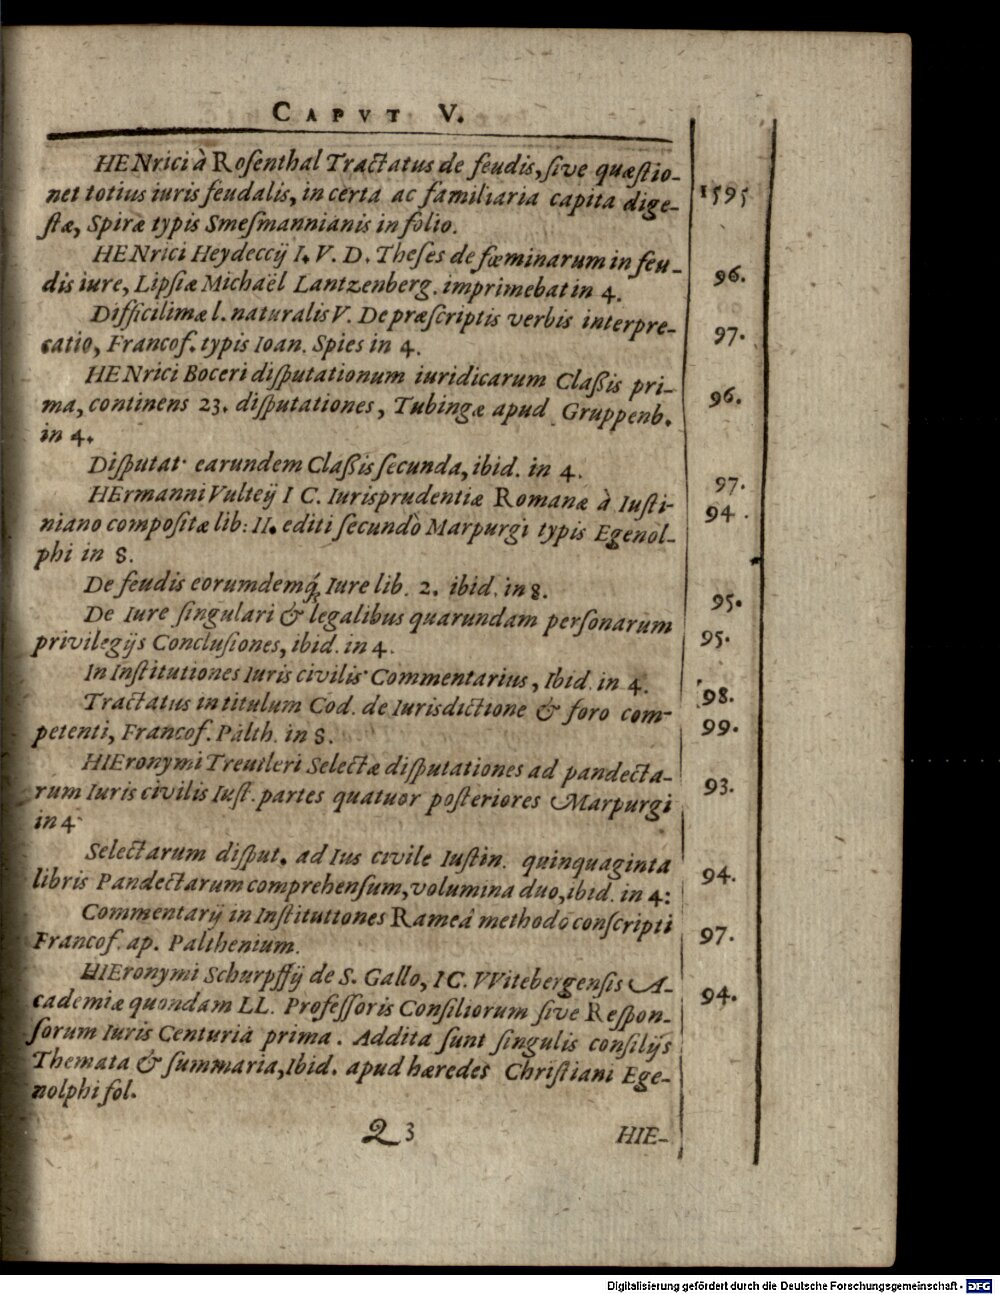 CAPVT V.
HENrici à Rosenthal Tractatus de feudis, sive quæstio-
net totius iuris feudalis, in certa ac familiaria capita dige- 1595
stæ, Spiræ typis Smesmannianis in folio.
HENrici Heydeccij I. V. D. Theses de fœminarum in feu-
dis iure, Lipsiæ Michaël Lantzenberg. imprimebat in 4. 96.
Difficilimæ l. naturalis V. De præscriptis verbis interpre- 97.
tatio, Francof. typis Ioan. Spies in 4.
HENrici Boceri disputationum iuridicarum Classis pri-
ma, continens 23. disputationes, Tubingæ apud Gruppenb. 96.
in 4.
Disputat· earundem Classis secunda, ibid. in 4. 97.
HErmanni Vulteij I C. Iurisprudentiæ Romanæ à Iusti- 94.
niano compositæ lib: II. editi secundò Marpurgi typis Egenol-
phi in 8.
De feudis eorumdemq́; Iure lib. 2. ibid. in 8. 95.
De Iure singulari & legalibus quarundam personarum 95.
privilegijs Conclusiones, ibid. in 4.
In Institutiones Iuris civilis Commentarius, Ibid. in 4. 98.
Tractatus in titulum Cod. de Iurisdictione & foro com- 99.
petenti, Francof. Palth. in 8.
HIEronymi Treutleri Selectæ disputationes ad pandecta- 93.
rum Iuris civilis Iust. partes quatuor posteriores Marpurgi
in 4
Selectarum disput. ad Ius civile Iustin. quinquaginta
libris Pandectarum comprehensum, volumina duo, ibid. in 4: 94.
Commentarij in Instituttones Rameâ methodo conscripti 97.
Francof. ap. Palthenium.
HIEronymi Schurpffij de S. Gallo, I C. VVitebergensis A- 94.
cademiæ quondam LL. Professoris Consiliorum sive Respon-
sorum Iuris Centuria prima. Addita sunt singulis consilijs
Themata & summaria, Ibid. apud hæredes Christiani Ege-
nolphi fol.
Q 3 HIE-
Digitalisierung gefördert durch die Deutsche Forschungsgemeinschaft - DFG